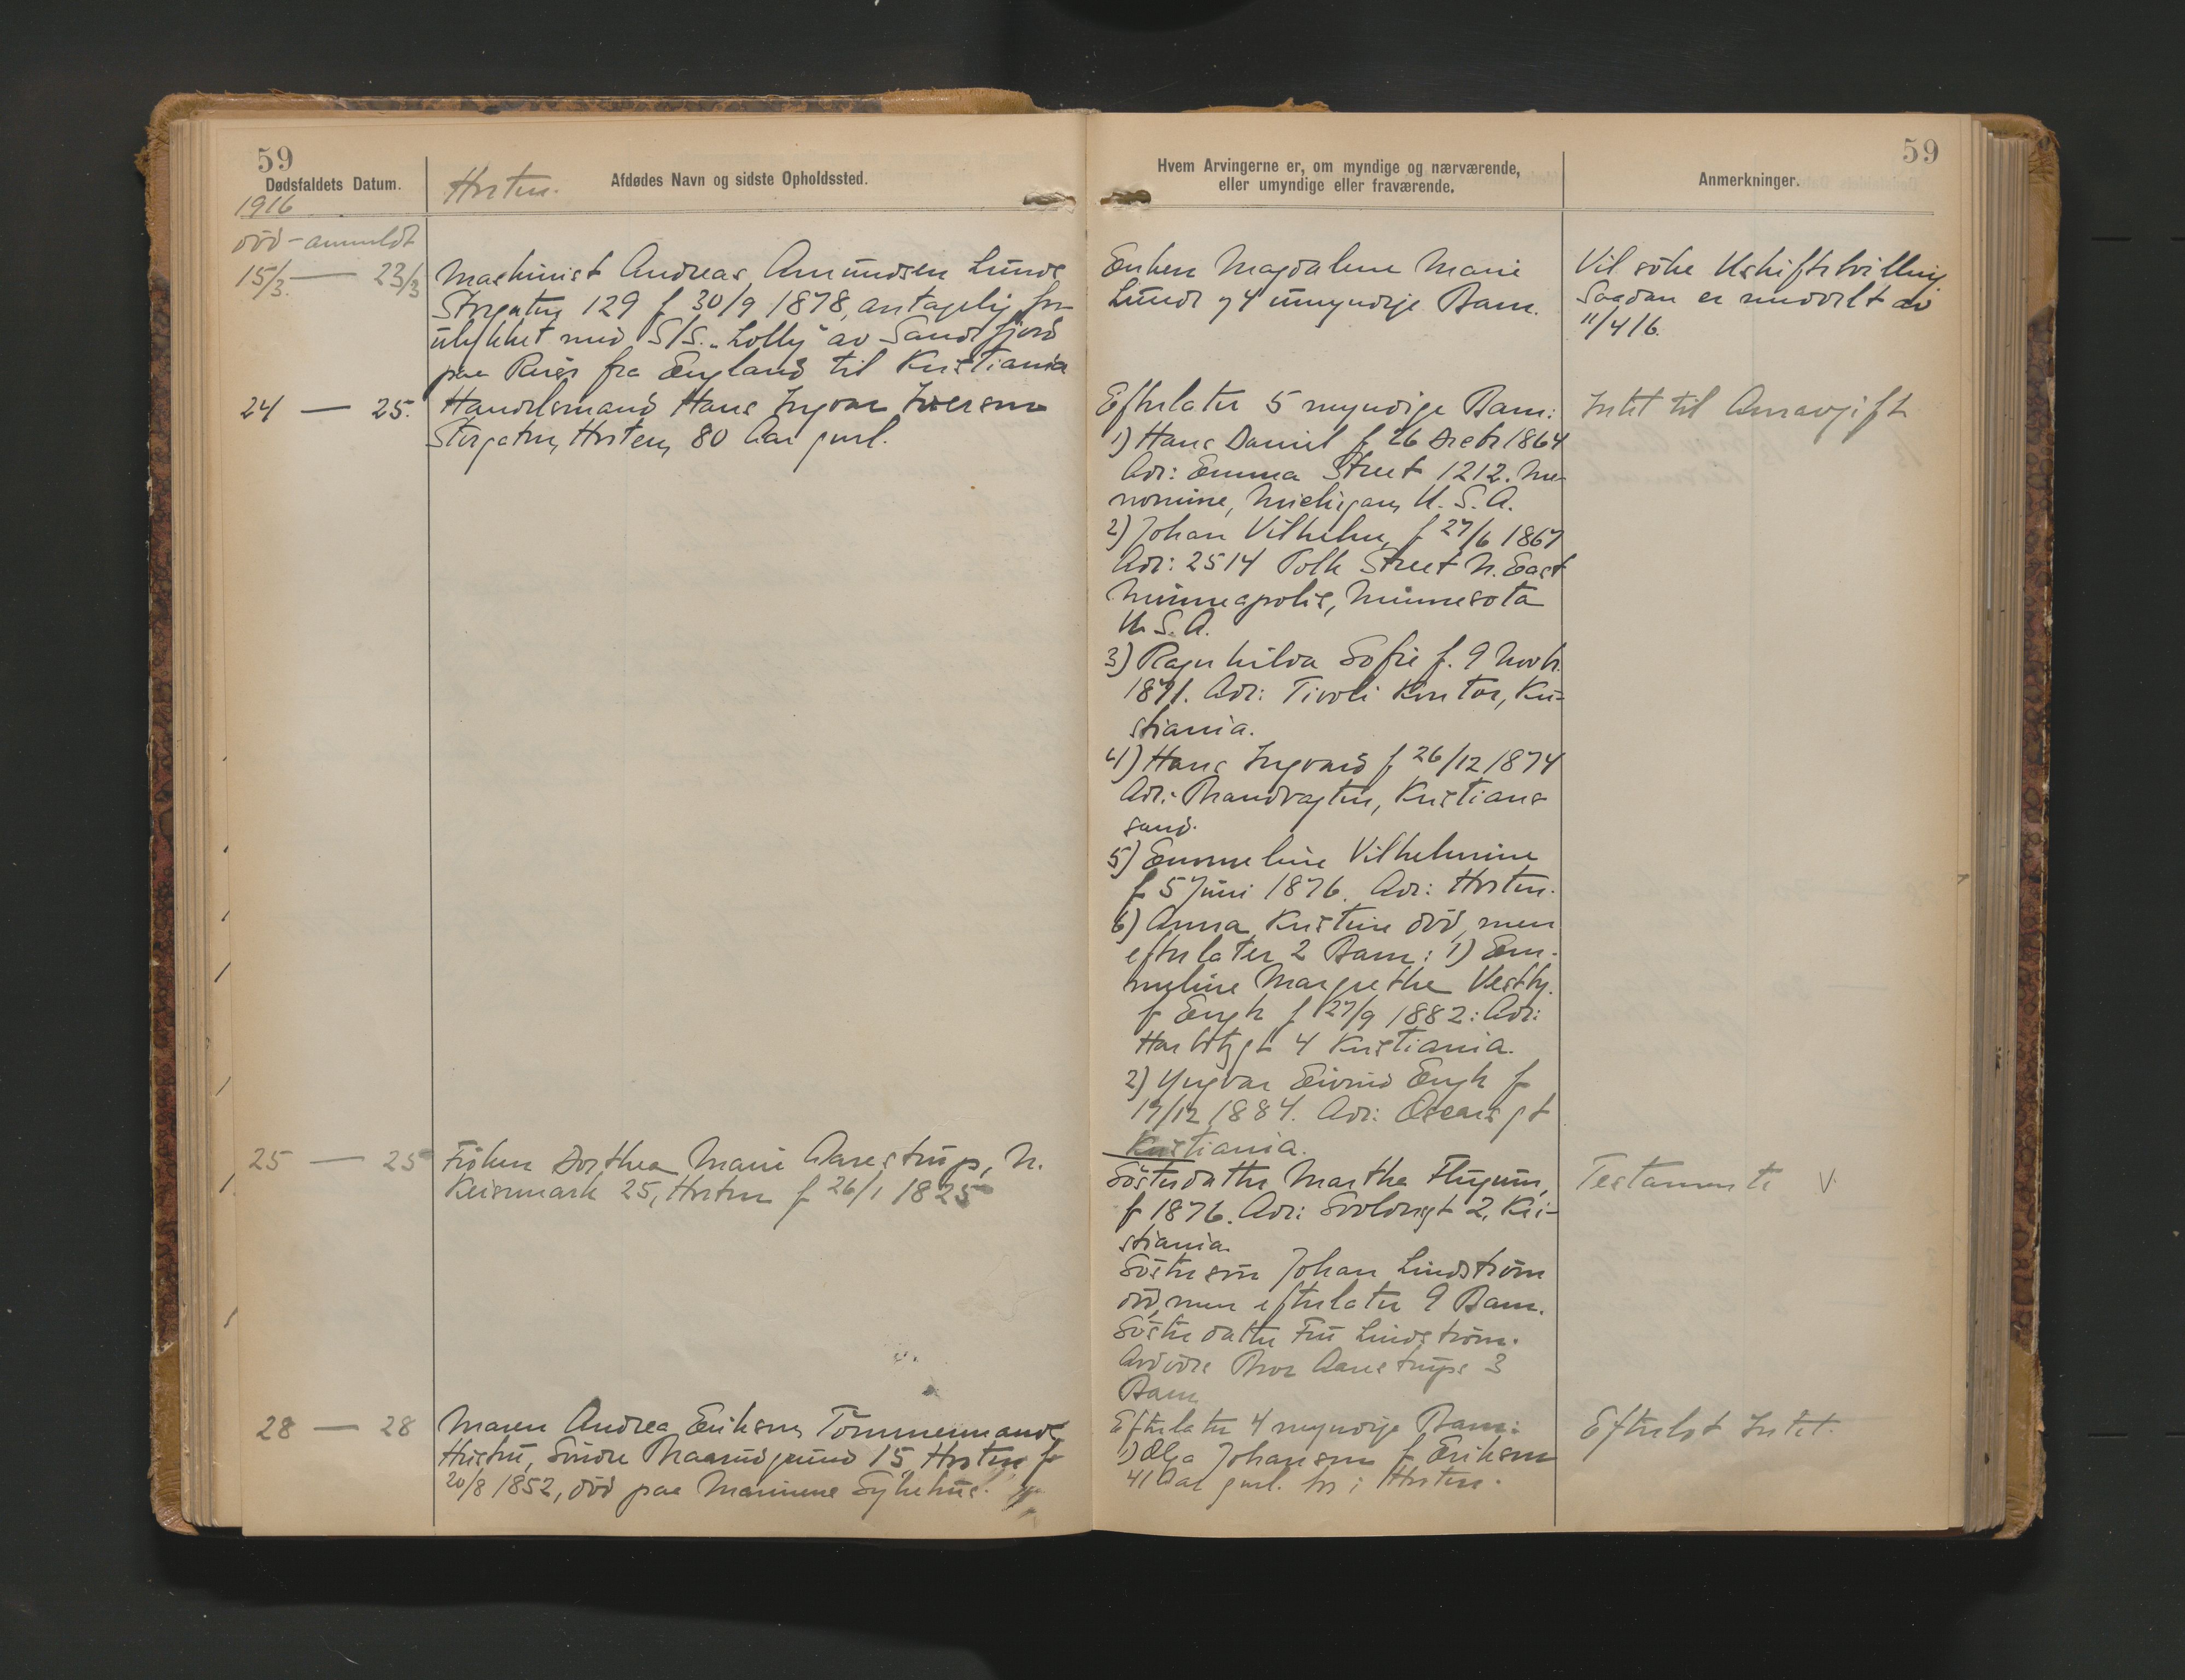 59
59
Dødsfaldets Datum.
Horten.
Afdødes Navn og sidste Opholdssted.
Hvem Arvingerne er, om myndige og nærværende,
eller umyndige eller fraværende.
Anmerkninger.
1916
död - anmeldt
15/3. — 23/3
Maskinist Andreas Amundsen Lunde
Storgaten 129 f 30/9 1878, antagelig for-
ulykket med S/S. "Lolly" av Sandefjord
paa Reise fra England til Kristiania
Enken Magdalene Marie
Lunde og 4 umyndige Barn.
Vil söke Uskiftebevilling
Saadan er meddelt av
11/4 16.
24 — 25.
Handelsmand Hans Ingvar Iversen
Storgaten, Horten, 80 Aar gml.
Efterlater 5 myndige Barn:
1) Hans Daniel f 26 Decbr 1864
Adr: Emma Street 1212. Me-
nomine, Michigan, U. S. A.
2) Johan Vilhelm, f 27/6 1867
Adr: 2514 Polk Street N. East
Minneapolis, Minnesota
U. S. A.
3) Ragnhilda Sofie f. 9 Novbr.
1871. Adr: Tivoli Kontor, Kri-
stiania.
4) Hans Ingvard f 26/12 1874
Adr: Brandvagten, Kristians
sand.
5) Emmeline Vilhelmine
f 5 Juni 1876. Adr: Horten.
6) Anna Kristine död, men
efterlater 2 Barn: 1) Em-
meline Margrethe Vestby.
f Engh f 27/9 1882: Adr:
4 Kristiania.
2) Yngvar Eivind Engh f
17/12 1884. Adr: Oscarsgt
Kristiania.
Intet til Arveavgift
25 — 25
Fröken Dorthea Marie Aarestrup, N.
Keisemark 25, Horten f 26/1 1825
Sösterdatter Marthe Flugum,
f 1876. Adr: Svoldergt 2, Kri-
stiania.
Söstersön Johan Lindström
död, men efterlater 9 Barn.
Sösterdatter Fru Lindström.
Avdöde Bror Aarestrups 3
Barn
Testamente V.
28 — 28
Maren Andrea Eriksen, Tömmermands
Hustru, Söndre Braarudgrund 15 Horten f
20/8 1852, död paa Marinens Sykehus.
Efterlater 4 myndige Barn:
1) Olga Johansen f Eriksen
41 Aar gml. bor i Horten.
Efterlot Intet.